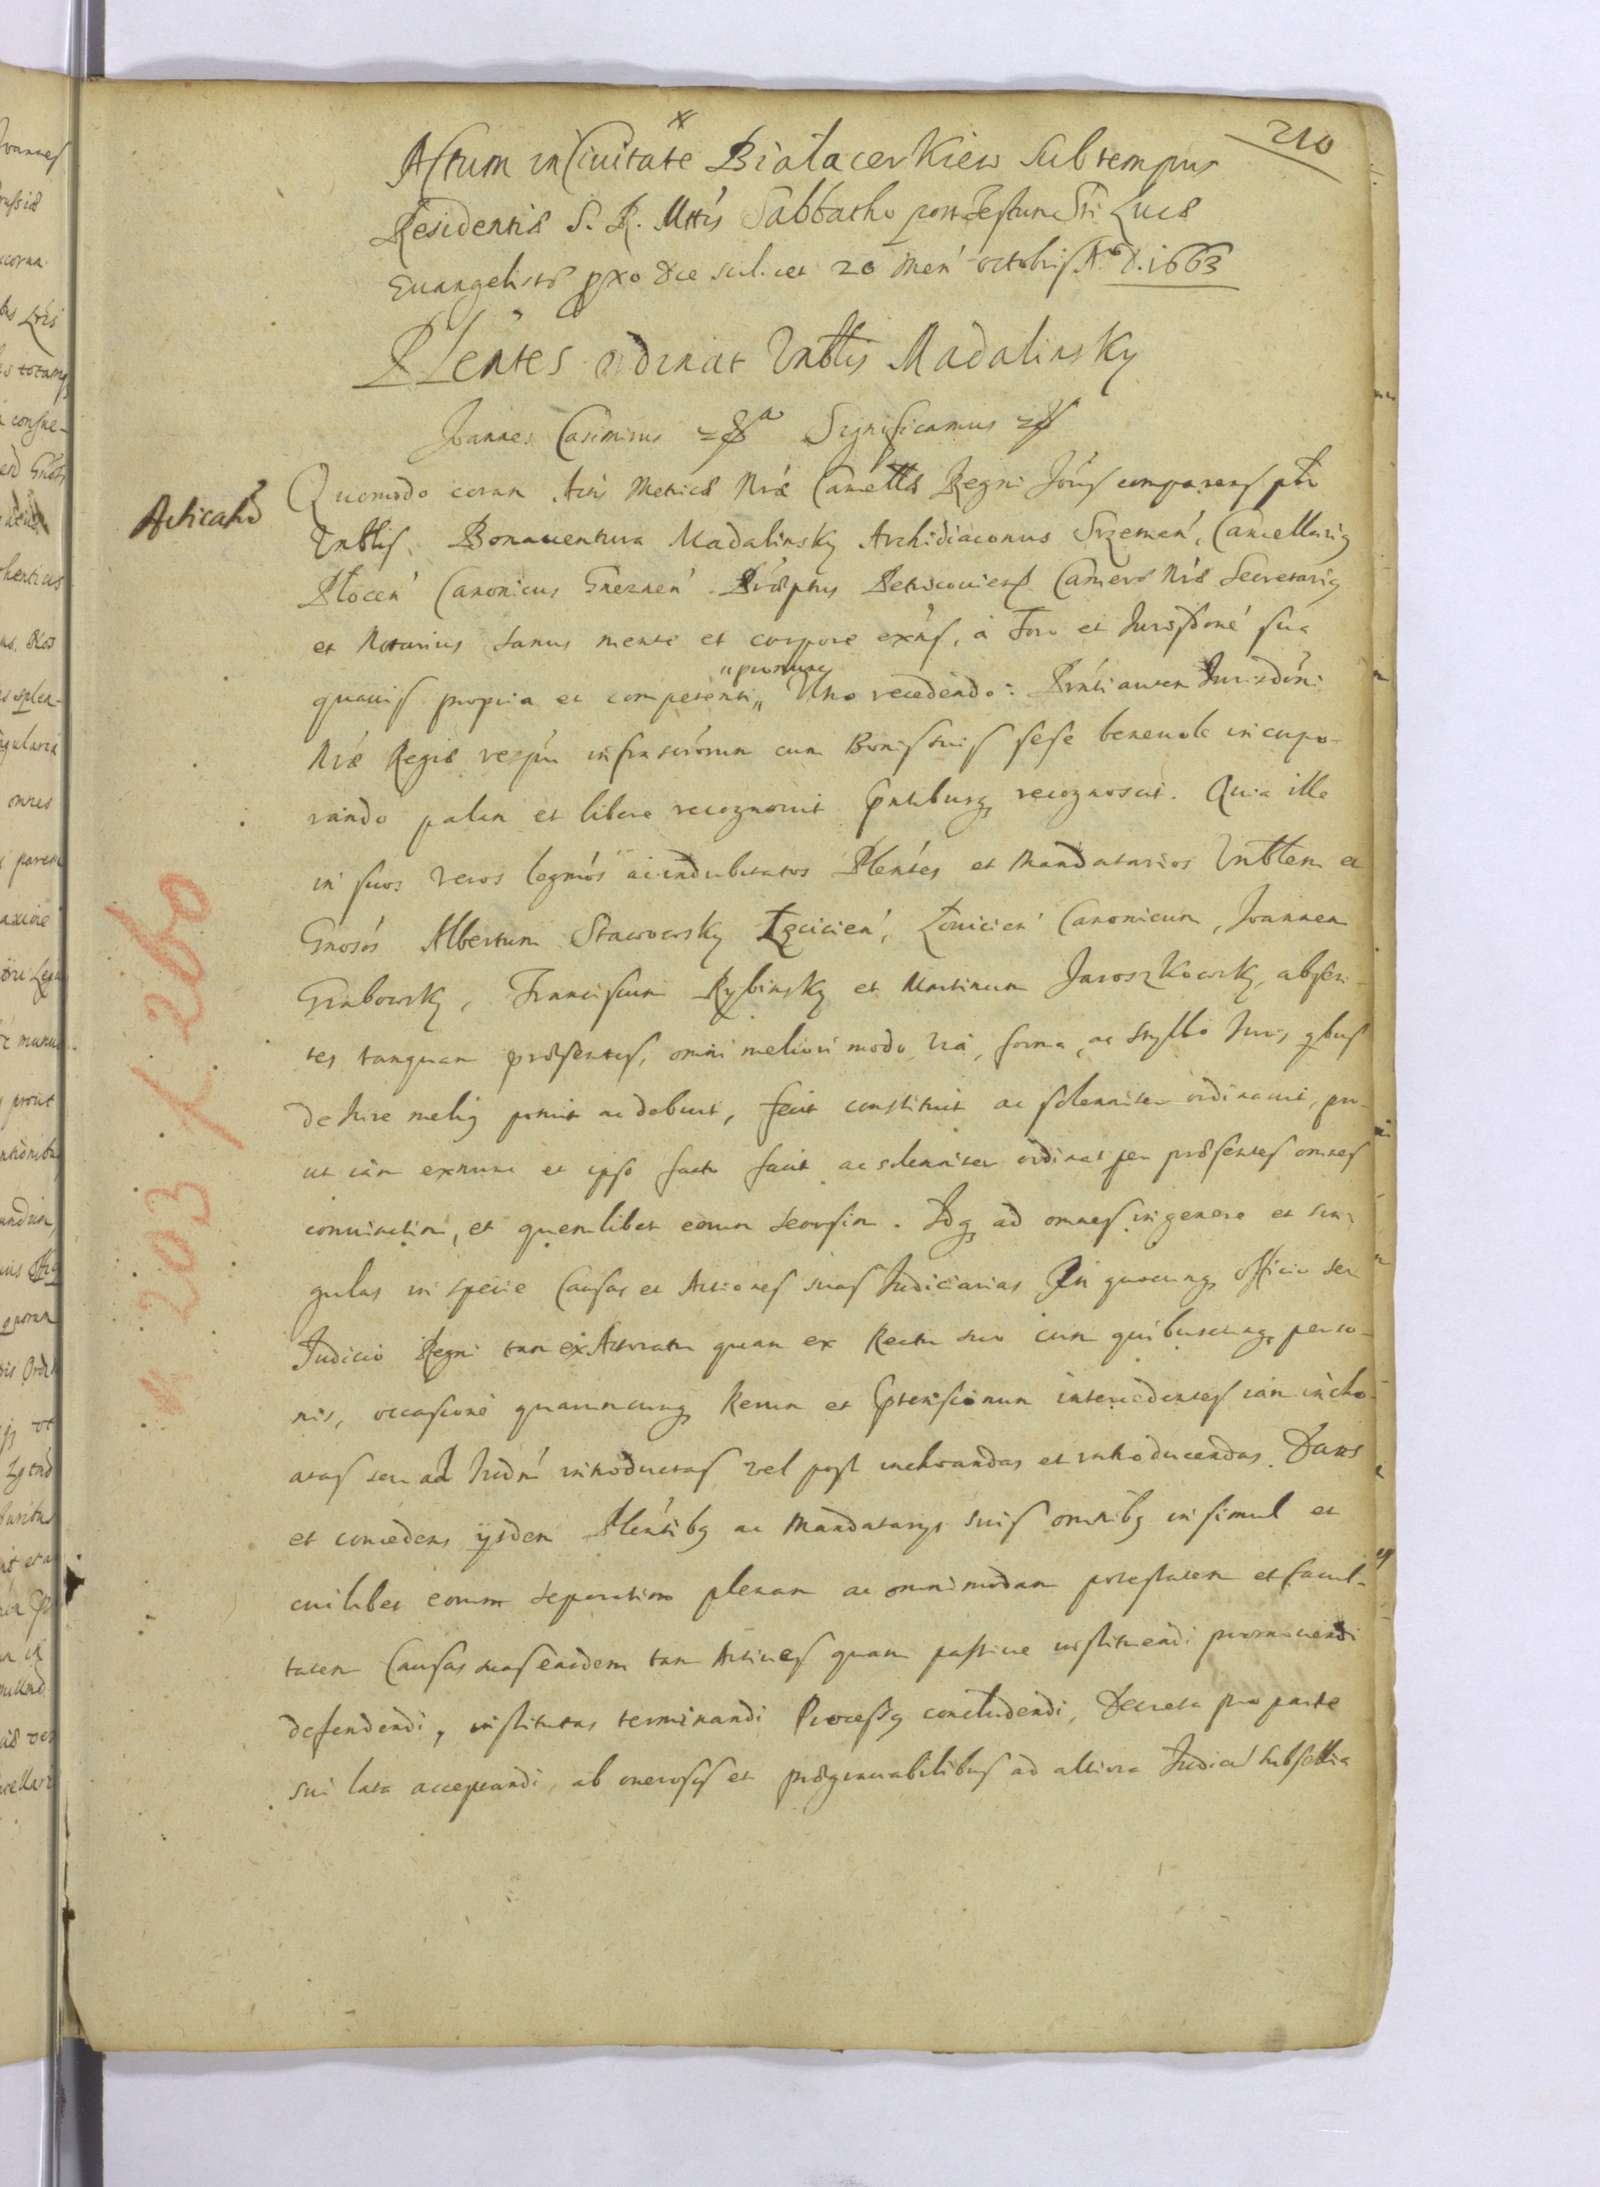 210
Actum in Ciuitate Białacerkiew Sub tempus
Residentiæ S. R. Mttis Sabbatho post Festum Sti Lucæ
Euangelistæ pxo die scilicet 20 Men Octobris Ao D. 1663
Plentes ordinat Vnblis Madalinsky
Joannes Casimirus Significamus
Acticatio
Quomodo coram Actis Metricæ Nræ Cancellæ Regni comparens
Vnblis Bonauentura Madalinsky Archidiaconus Srzemen, Cancellarius
Plocen Canonicus Gneznen Præptus Petricouien Cameræ Nræ Secretarius
et Notarius sanus mente et corpore exñs, à Foro et Jurisdone sua
"prorsus
quauis propria et competenti" Vno recedendo: Prntiautem Jurisdoni
Nræ Regiæ respu infrascrorum cum Bonis suis sese beneuole incorpo-
rando palam et libere recognouit Pntibusq recognoscit. Quia ille
in suos veros legmos ac indubitatos Plentes et Mandatarios Vnblem et
Gnosos Albertum Stawowsky Łęcicien, Łouicien Canonicum, Joannem
Grabowsky, Franciscum Rybinsky et Martinum Jaroszkowsky, absen-
tes tanquam præsentes, omni meliori modo, via, forma, ac styllo Juris, qbus
de Jure melius potuit ac debuit, fecit constituit ac solenniter ordinauit, pro-
ut iam exnunc et ipso facto facit ac solenniter ordinat per præsentes omnes
coniunctim, et quemlibet eorum seorsim. Idq ad omnes in genere et sin-
gulas in specie Causas et Actiones suas Judiciarias In quocunq Officio seu
Judicio Regni tam ex Actoratu quam ex Reatu suo cum quibuscunq perso-
nis, occasione quarumcunq Rerum et Ptensionum intercedentes iam incho-
atas seu ad Judm introductas vel post inchoandas et introducendas. Dans
et concedens ijsdem Plentibq ac Mandatarijs suis omnibq insimul et
cuilibet eorum separatim plenam ac omnimodam potestatem et facul-
tatem Causas suas easdem tam Actiues quam passiue instituendi promouendi
defendendi, institutas terminandi Processq concludendi, Decreta pro parte
sui lata acceptandi, ab onerosis et prægrauabilibus ad altiora Judicā Subsellia
203 f. 260